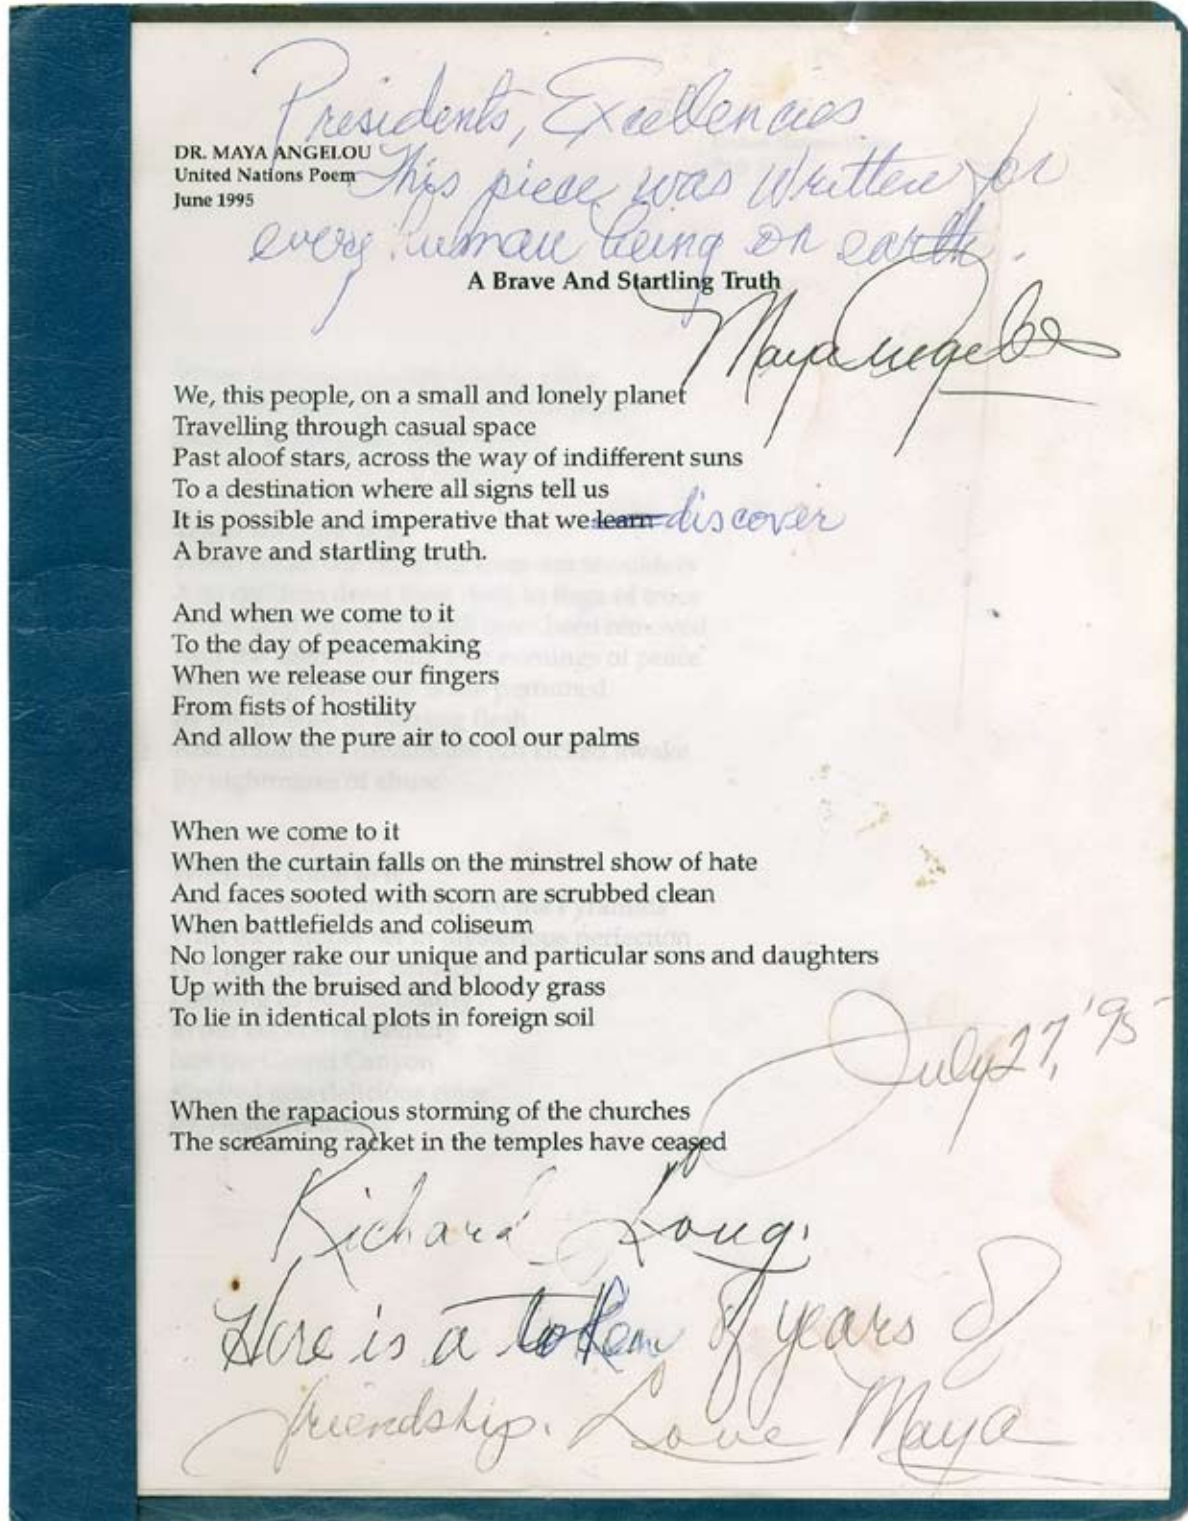 Presidents, Excellencies
DR. MAYA ANGELOU
This piece was written for
United Nations Poem
June 1995
every human being on earth.
A Brave And Startling Truth
Maya Angelou
We, this people, on a small and lonely planet
Travelling through casual space
Past aloof stars, across the way of indifferent suns
To a destination where all signs tell us
It is possible and imperative that we learn discover
A brave and startling truth.
And when we come to it
To the day of peacemaking
When we release our fingers
From fists of hostility
And allow the pure air to cool our palms
When we come to it
When the curtain falls on the minstrel show of hate
And faces sooted with scorn are scrubbed clean
When battlefields and coliseum
No longer rake our unique and particular sons and daughters
Up with the bruised and bloody grass
To lie in identical plots in foreign soil
July 27, '95
When the rapacious storming of the churches
The screaming racket in the temples have ceased
Richard Long,
Here is a token of years of
friendship. Love Maya